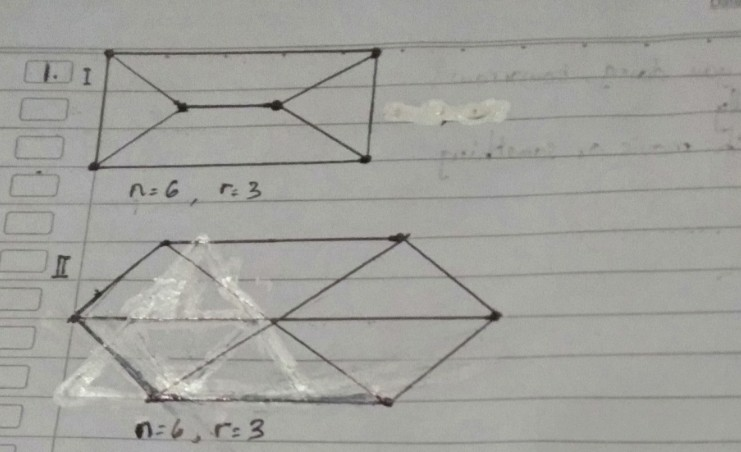 1. I
n=6, r=3
II
n=6, r=3